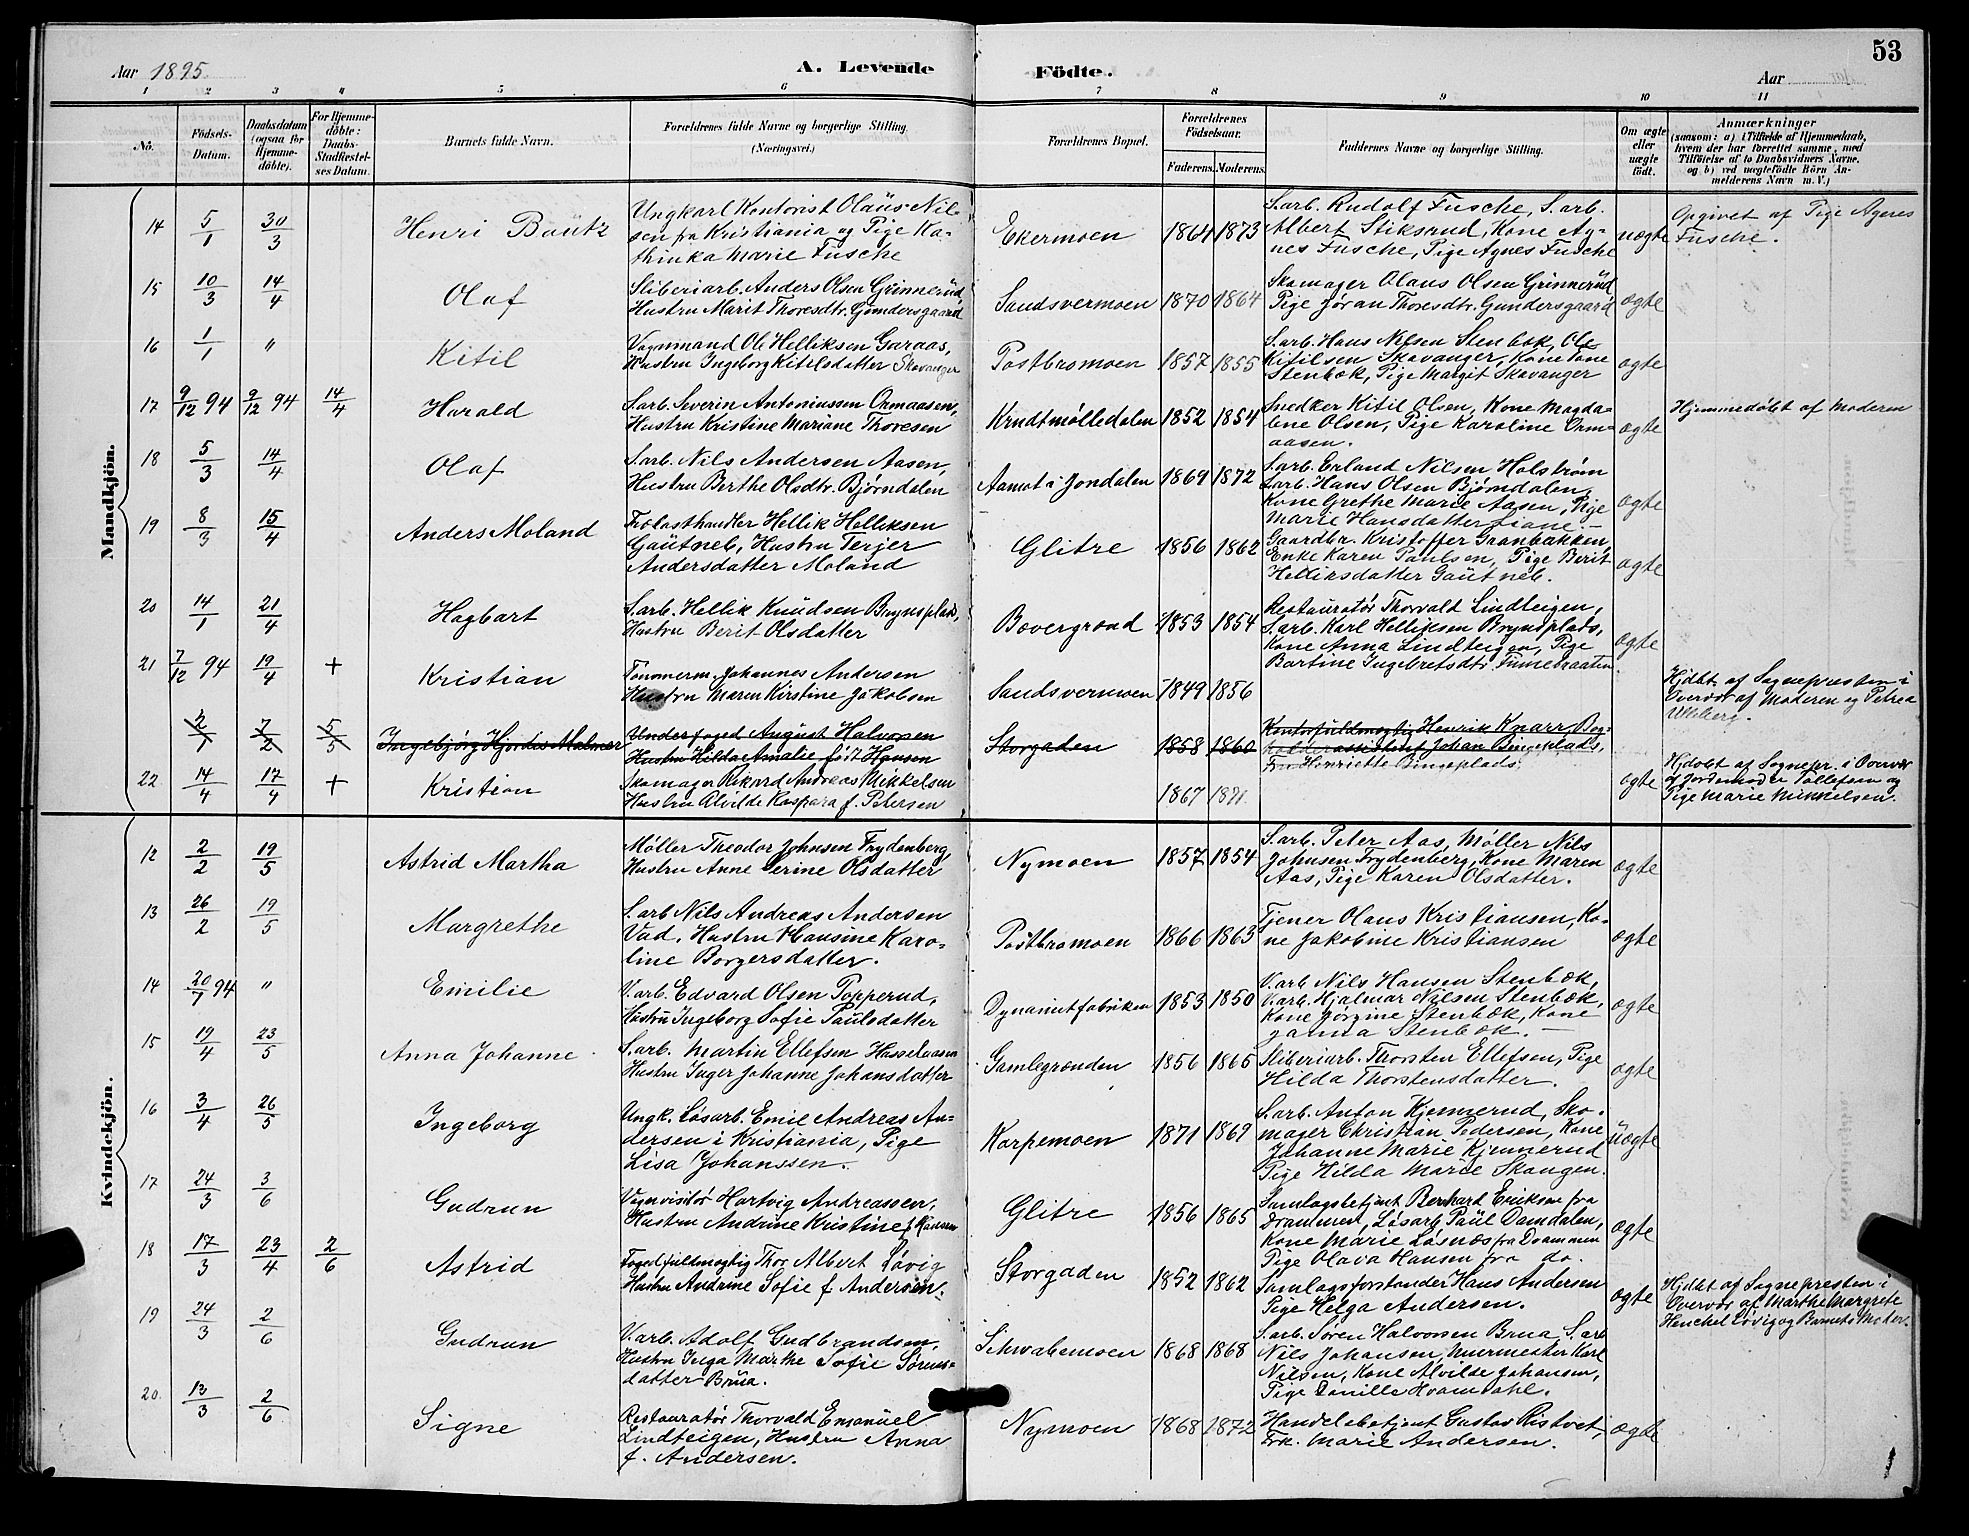 53
Aar 1895.
A. Levende Födte.
Aar
1 2 3 4 5 6 7 8 9 10 11
No.
Födsels-Datum.
Daabsdatum (ogsaa for Hjemmedöbte).
For Hjemmedöbte: Daabs-Stadfæstelses Datum.
Barnets fulde Navn.
Forældrenes fulde Navne og borgerlige Stilling. (Næringsvei.)
Forældrenes Bopæl.
Forældrenes Födselsaar.
Faderens. Moderens.
Faddernes Navne og borgerlige Stilling.
Om ægte eller uægte født.
Anmærkninger
(saasom: a) i Tilfælde af Hjemmedaab,
hvem der har forrettet samme, med
Tilføielse af to Daabsvidners Navne,
og b) ved uægtefödte Börn Anmelderens Navn m. V.)
Mandkjön.
14 5/1 30/3 Henri Bautz
Ungkarl Kontorist Olaüs Nil-
sen fra Kristiania og Pige Ka-
thinka Marie Fusche
Ekermoen 1864 1873
S.arb. Rudolf Fusche, S.arb.
Albert Stiksrud, Kone Ag-
nes Fusche, Pige Agnes Fusche
uægte
Opgivet af Pige Agnes
Fusche.
15 10/3 14/4 Olaf
Sliberiarb. Anders Olsen Grinnerüd
Hustru Marit Thoresdtr. Gundersgaard
Sandsvermoen 1870 1864
Skomager Olaus Olsen Grinnerüd
Pige Jøran Thoresdtr. Gundersgaard
ægte
16 1/1 " Kitil
Vognmand Ole Helliksen Garaas,
Hustru Ingeborg Kitilsdatter Skavanger
Postbromoen 1857 1855
S.arb. Hans Nilsen Stenbæk, Ole
Kitilsen Skavanger, Kone Tone
Stenbæk, Pige Margit Skavanger
ægte
17 9/12 94 9/12 94 14/4 Harald
S.arb. Severin Antoniussen Ormaasen,
Hustru Kristine Mariane Thoresen
Krudtmølledalen 1852 1854
Snedker Kitil Olsen, Kone Magda-
lene Olsen, Pige Karoline Orm-
aasen.
ægte
Hjemmedøbt af Moderen
18 5/3 14/4 Olaf
S.arb. Nils Andersen Aasen,
Hustru Berthe Olsdtr. Bjørndalen
Aamot i Jondalen 1869 1872
S.arb. Erland Nilsen Holstrøm
S.arb. Hans Olsen Bjørndalen,
Kone Grethe Marie Aasen, Pige
Marie Hansdatter Liane.
ægte
19 8/3 15/4 Anders Moland
Trælasthandler Hellik Helliksen
Gaütneb, Hustru Terjer
Andersdatter Moland
Glitre 1856 1862
Gaardbr. Kristoffer Granbakken,
Enke Karen Paulsen, Pige Berit
Helliksdatter Gaütneb.
ægte
20 14/1 21/4 Hagbart
S.arb. Hellik Knüdsen Brynsplads,
Hustru Berit Olsdatter
Bævergrænd 1853 1854
Restauratør Thorvald Lindteigen,
S.arb. Karl Helliksen Brynsplads,
Kone Anna Lindteigen, Pige
Bertine Ingebretsdtr. Finnebraaten
ægte
21 7/12 94 19/4 + Kristian
Tømmerm. Johannes Andersen
Hustru Maren Kirstine Jakobsen
Sandsvermoen 1849 1856
Hjdbt. af Sognepresten i
Overvær af Moderen og Petrea
2/1 7/2 5/5 Ingebjørg Hjørdis Malmer
Underfoged August Halvorsen
Hustru Hilda Amalie født Hansen
Storgaden 1858 1860
Kontorfuldmægtig Henrik Knarr, Bog-
holderassistent Johan Bingeplads,
Fru Henriette Bingeplads.
22 14/4 17/4 + Kristian
Skomager Rikard Andreas Mikkelsen
Hustru Alvilde Kaspara f. Petersen
1867 1871
ægte
Hjdøbt af Sognepr. i Overvær
af Jordemoder Tollefsen og
Pige Marie Mikkelsen.
Kvindekjön.
12 2/2 19/5 Astrid Martha
Møller Theodor Johnsen Frydenberg,
Hustru Anne Serine Olsdatter
Nymoen 1857 1854
S.arb. Peter Aas, Møller Nils
Johnsen Frydenberg, Kone Maren
Aas, Pige Karen Olsdatter.
ægte
13 26/2 19/5 Margrethe
S.arb Nils Andreas Andersen
Vad, Hustru Hansine Karo-
line Borgersdatter.
Postbromoen 1866 1863
Tjener Olaus Kristiansen, Ko-
ne Jakobine Kristiansen
ægte
14 20/7 94 " Emilie
V.arb. Edvard Olsen Topperud,
Hüstrü Ingeborg Sofie Paulsdatter
Dynamitfabriken 1853 1850
V.arb Nils Hansen Stenbæk,
V.arb. Hjalmar Nilsen Stenbæk,
Kone Jørgine Stenbæk, Kone
Janna Stenbæk.
ægte
15 19/4 23/5 Anna Johanne
S.arb. Martin Ellefsen Hasselaasen
Hustru Inger Johanne Johansdatter
Gamlegrænden 1856 1865
Sliberiarb. Thorsten Ellefsen, Pige
Hilda Thorstensdatter.
ægte
16 3/4 26/5 Ingeborg
Ungk. Løsarb. Emil Andreas An-
dersen i Kristiania, Pige
Lisa Johanssen.
Karpemoen 1871 1869
S.arb. Anton Kjennerud, Sko-
mager Christian Pedersen, Kone
Johanne Marie Kjennerud
Pige Hilda Marie Skaugen.
üægte
17 24/3 3/6 Gudrun
Vognvisitør Hartvig Andreassen,
Hustru Andrine Kristine f.
Glitre 1856 1865
Samlagsbetjent Bernhard Eriksen fra
Drammen, Løsarb. Paül Damdalen,
Kone Marie Løsnæs fra Drammen
Pige Olava Hansen fra do.
ægte
18 17/3 23/4 2/6 Astrid
Fogedfuldmægtig Thor Albert Løvig
Hustru Andrine Sofie f. Andersen.
Storgaden 1852 1862
Samlagsforstander Hans Andersen
Pige Helga Andersen.
ægte
Hjdbt af Sognepresten i
Overvær af Marthe Margrete
Henchel Løvig og Barnets Moder.
19 24/3 2/6 Gudrun
V.arb. Adolf Gudbrandsen,
Hustru Inga Marthe Sofie Sørens-
datter Brüa.
Schwabemoen 1868 1868
S.arb. Søren Halvorsen Brua, S.arb
Nils Johansen, Murmester Karl
Nilsen, Kone Alvilde Johansen,
Pige Danille Hvamdahl.
ægte
20. 13/3 2/6 Signe
Restauratør Thorvald Emanüel
Lindteigen, Hustru Anna
f. Andersen.
Nymoen 1868 1872
Handelsbetjent Gustav Ristvet,
Frk. Marie Andersen.
ægte